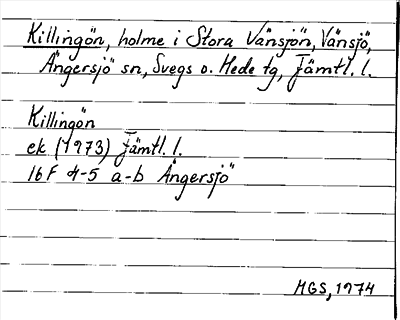 Killingön, holme i Stora Vänsjön, Vänsjö,
Ängersjö sn, Svegs o. Hede tg, Jämtl. l.
Killingön
ek (1973) Jämtl. l.
16F 4-5 a-b Ängersjö
MGS, 1974